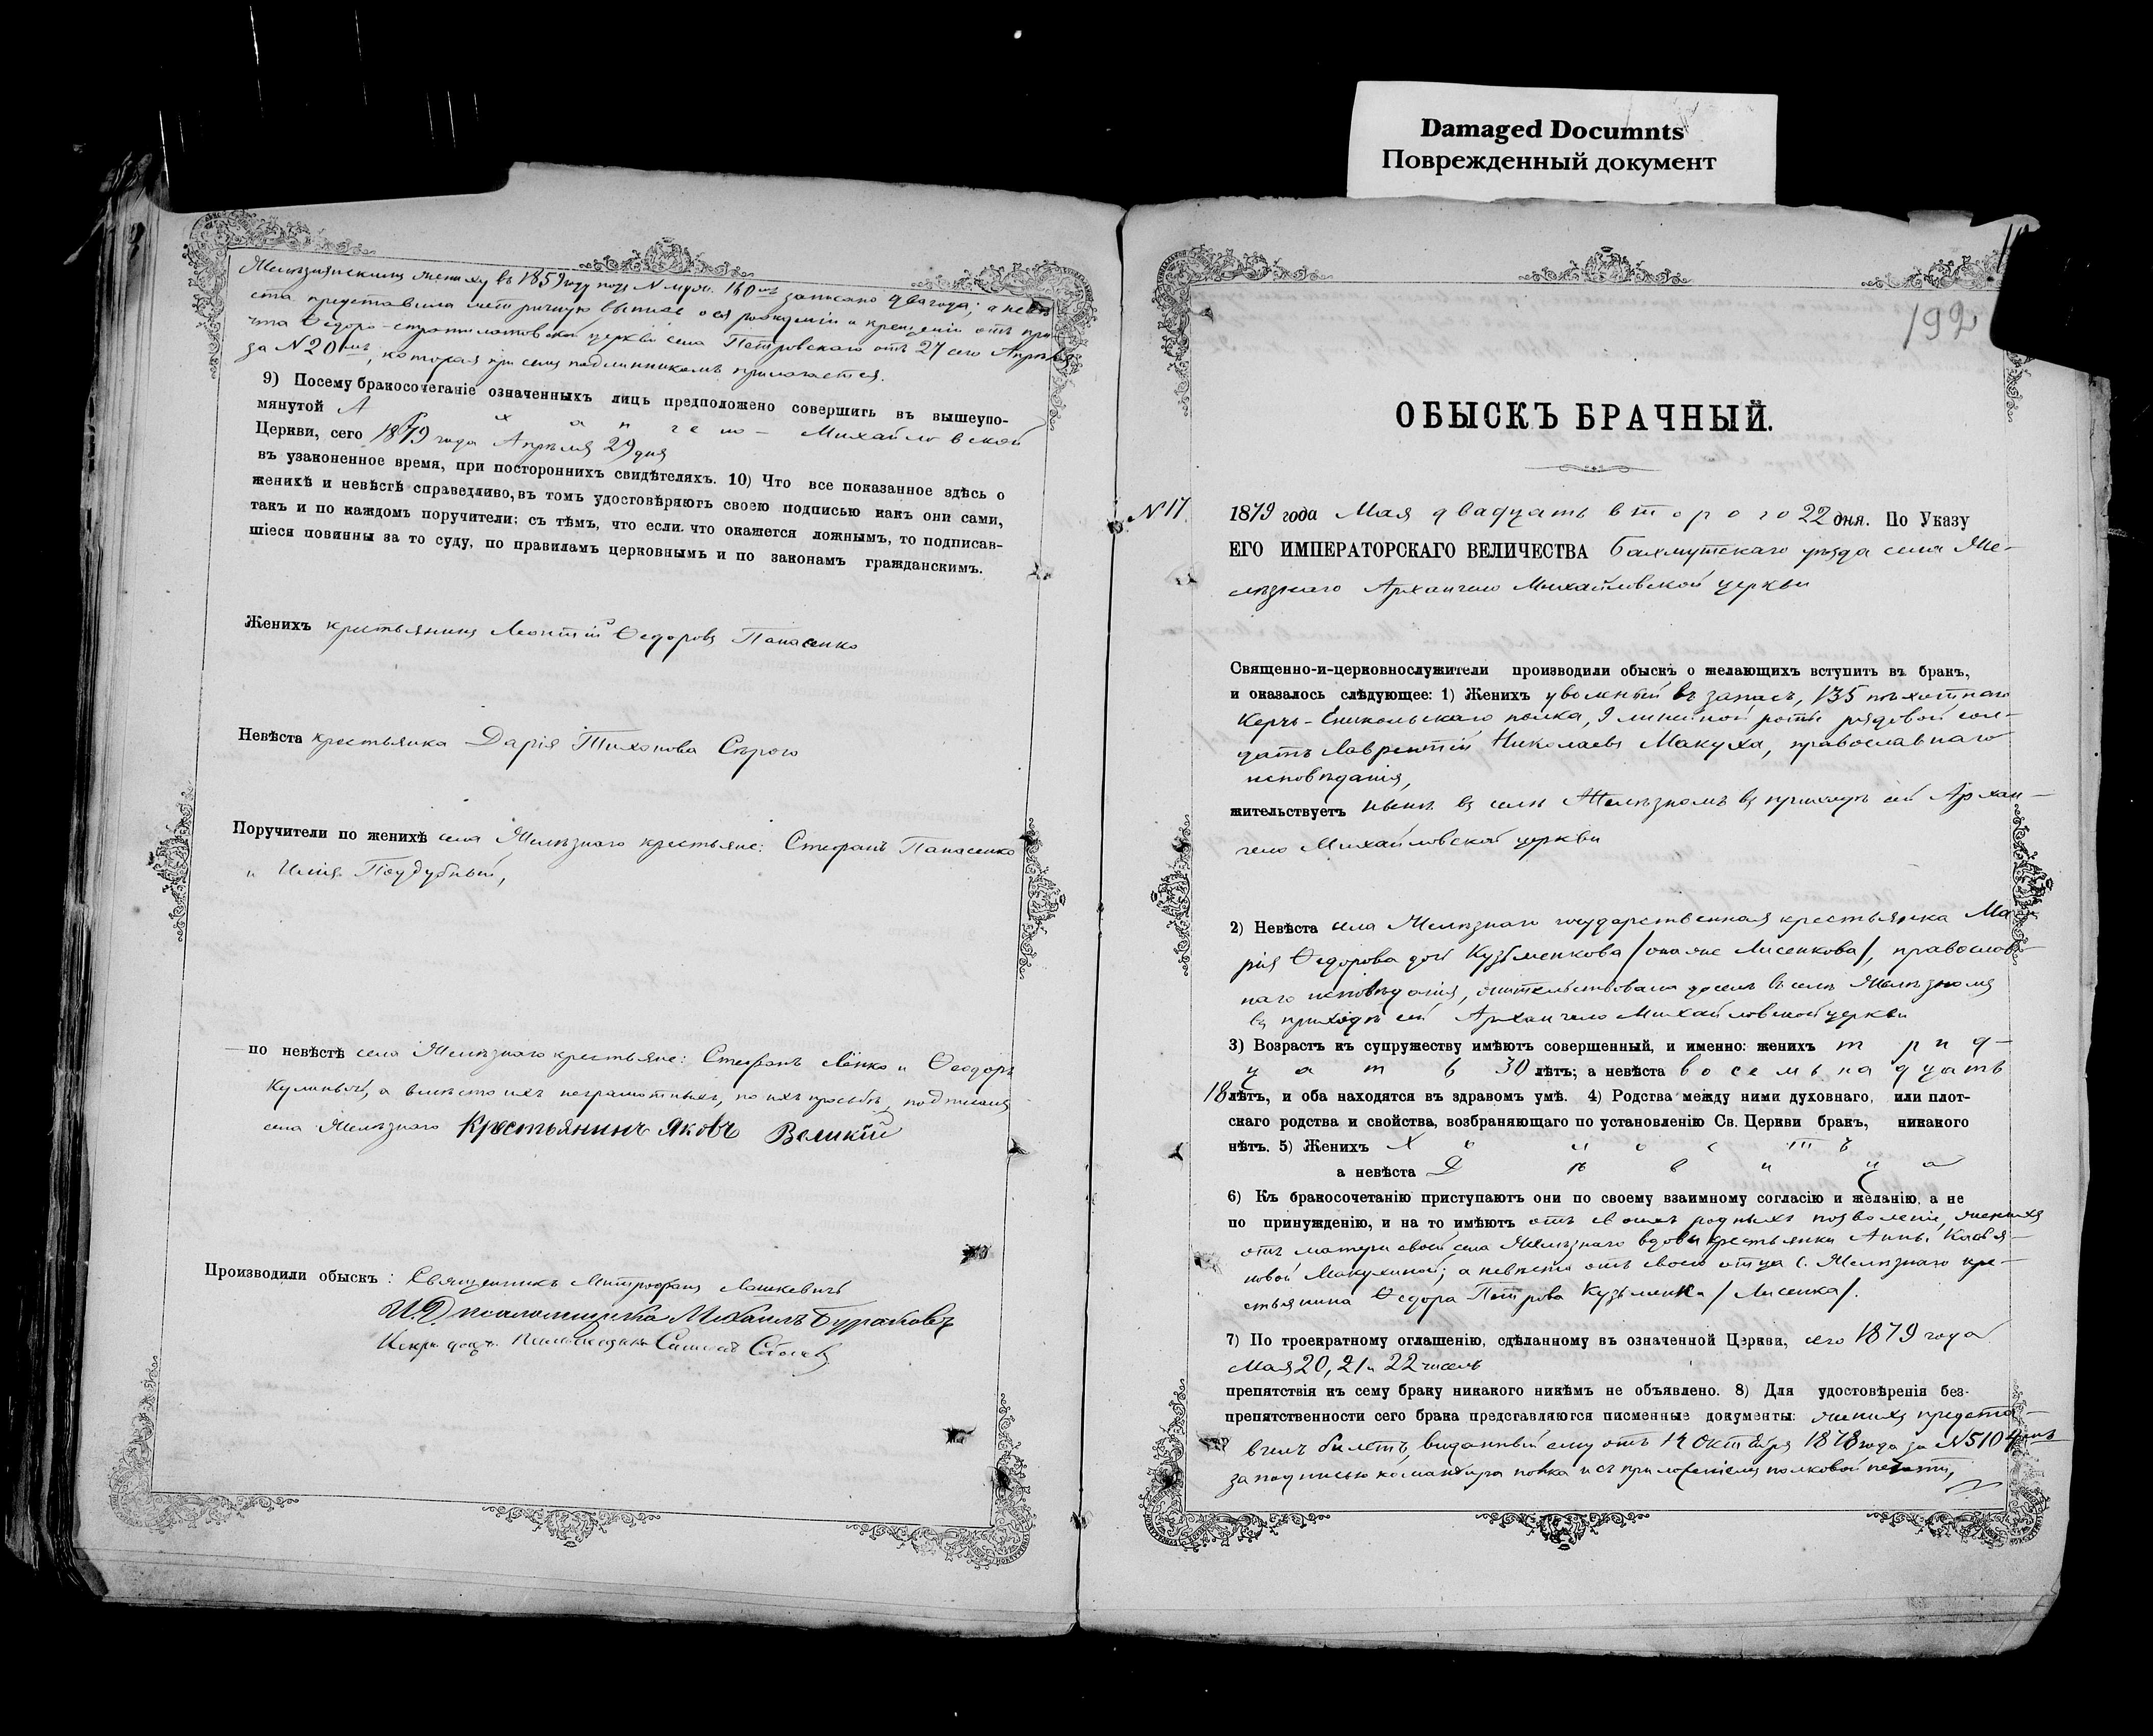 Damaged Documnts
Поврежденный документ
Желѣзнянскимъ жениху въ 1859 году подъ N муж. 160мъ записано два года; а невѣ-
ста представила метричную выпись о ея рожденіи и крещеніи отъ при-
чта Ѳедоро-стратилатовской церкви села Петровскаго отъ 27 сего Апрѣля
за N 20мъ, которая при семъ подлинникомъ прилагается.
9) Посему бракосочетаніе означенныхъ лицъ предположено совершить въ вышеупо-
мянутой Архангело-Михайловской
Церкви, сего 1879 года Апрѣля 29 дня
въ узаконенное время, при постороннихъ свидѣтеляхъ. 10) Что все показанное здѣсь о
женихѣ и невѣстѣ справедливо, въ томъ удостовѣряютъ своею подписью какъ они сами,
такъ и по каждомъ поручители; съ тѣмъ, что если что окажется ложнымъ, то подписав-
шіеся повинны за то суду, по правиламъ церковнымъ и по законамъ гражданскимъ.
Женихъ крестьянинъ Леонтій Ѳедоровъ Панасенко
Невѣста крестьянка Дарія Тихонова Сѣрого
Поручители по женихѣ села Желѣзнаго крестьяне: Стефанъ Панасенко
и Илія Поддубный,
по невѣстѣ села Желѣзнаго крестьяне: Стефанъ и Ѳеодоръ
а вмѣсто ихъ неграмотныхъ, по ихъ просьбѣ, подписался
села Желѣзнаго Крестьянинъ Яковъ Великій
Производили обыскъ: Священникъ Митрофанъ Лашкевичъ
И. Д. псаломщика Михаилъ
192
ОБЫСКЪ БРАЧНЫЙ.
N 17. 1879 года Мая двадцать второго 22 дня. По Указу
ЕГО ИМПЕРАТОРСКАГО ВЕЛИЧЕСТВА Бахмутскаго уѣзда села Же-
лѣзнаго Архангело Михайловской церкви
Священно-и-церковнослужители производили обыскъ о желающихъ вступить въ бракъ,
и оказалось слѣдующее: 1) Женихъ уволенный въ запасъ, 135 пѣхотнаго
Керчь-Еникольскаго полка, 9 линейной роты рядовой сол-
датъ Лаврентій Николаевъ Макуха, православнаго
исповѣданія,
жительствуетъ нынѣ въ селѣ Желѣзномъ въ приходѣ сей Архан-
гело Михайловской церкви
2) Невѣста села Желѣзнаго государственная крестьянка Ма-
рія Ѳедорова дочь Кузьменкова /она же Лисенкова/, православ-
наго исповѣданія, жительствовала доселѣ въ селѣ Желѣзномъ
въ приходѣ сей Архангело Михайловской церкви
3) Возрастъ къ супружеству имѣютъ совершенный, и именно: женихъ трид-
цать 30 лѣтъ; а невѣста восемьнадцать
18 лѣтъ, и оба находятся въ здравомъ умѣ. 4) Родства между ними духовнаго, или плот-
скаго родства и свойства, возбраняющаго по установленію Св. Церкви бракъ, никакого
нѣтъ. 5) Женихъ Холостъ
а невѣста Дѣвица
6) Къ бракосочетанію приступаютъ они по своему взаимному согласію и желанію, а не
по принужденію, и на то имѣютъ отъ своихъ родныхъ позволеніе, женихъ
отъ матери своей, села Желѣзнаго вдовы крестьянки Анны Касья-
новой Макухиной; а невѣста отъ своего отца с. Желѣзнаго кре-
стьянина Ѳедора Петрова Кузьменка /Лисенка/.
7) По троекратному оглашенію, сдѣланному въ означенной Церкви, сего 1879 года
Мая 20, 21 и 22 чиселъ
препятствія къ сему браку никакого никѣмъ не объявлено. 8) Для удостовѣренія без-
препятственности сего брака представляются писменные документы: женихъ предста-
вилъ билетъ, выданный ему отъ 14 Октября 1878 года за N 5104мъ
за подписью командира полка и съ приложеніемъ полковой печати,